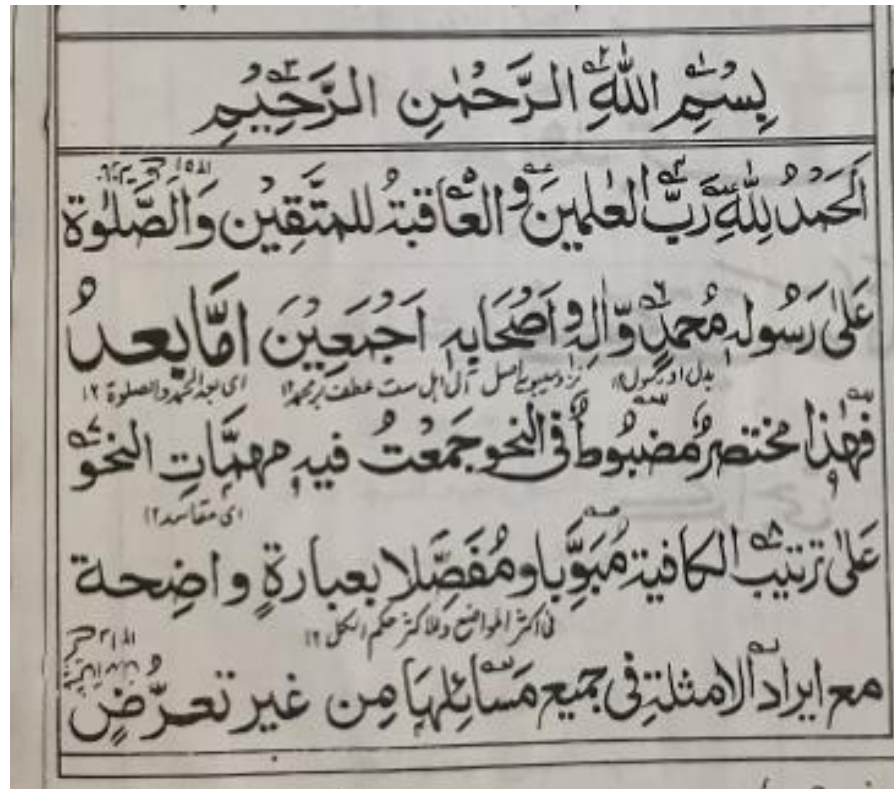 بِسْمِ اللهِ الرَّحْمٰنِ الرَّحِيْمِ
اَلْحَمْدُ لِلّٰهِ رَبِّ الْعٰلَمِيْنَ وَ الْعَاقِبَةُ لِلْمُتَّقِيْنَ وَالصَّلٰوةُ
عَلٰى رَسُوْلِهٖ مُحَمَّدٍ وَّاٰلِهٖ وَاَصْحَابِهٖ اَجْمَعِيْنَ اَمَّا بَعْدُ
بدل از رسول ۱۲ آل اہل ست عطف بر محمد ۱۲ ای بعد الحمد والصلوة ۱۲
فَهٰذَا مختصرٌ مَضْبُوْطٌ فی النحو جَمَعْتُ فِيْهِ مهمَّاتِ النحو
ای مقاصد ۱۲
عَلٰى ترتيب الكافية مُبَوِّبا ومُفَصِّلا بعبارةٍ واضِحة
فی اكثر المواضع وللاكثر حكم الكل ۱۲
مع ايراد الامثلةِ فی جميع مَسَائِلِهَا مِن غير تعرُّضٍ